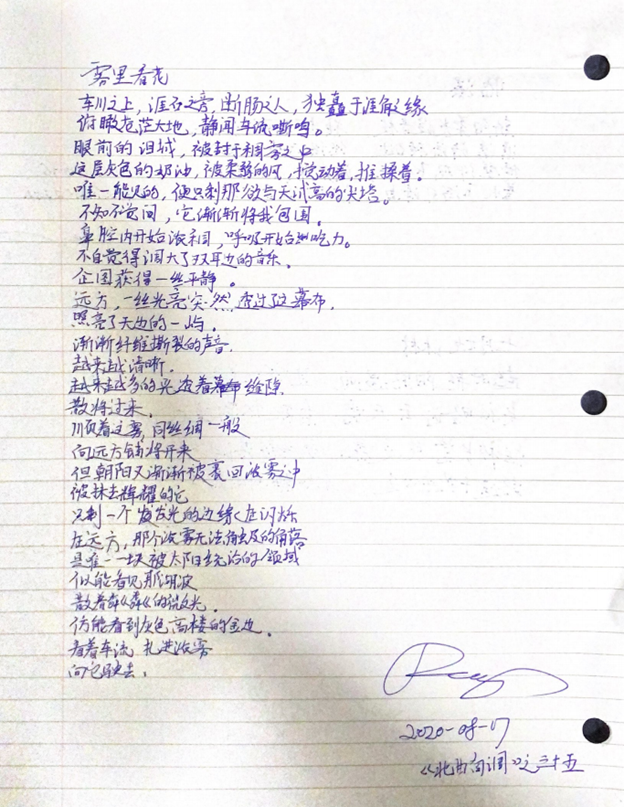 雾里看花
车川之上，涯石之旁，断肠之人，独矗于涯角之缘
俯瞰苍茫大地，静闻车流嘶鸣。
眼前的旧城，被封于稠雾之中
这层灰色的奶油，被柔弱的风，搅动着，推搡着。
唯一能见的，便只剩那欲与天试高的尖塔。
不知不觉间，它渐渐将我包围。
鼻腔内开始浓稠，呼吸开始吃力。
不自觉得调大了双耳边的音乐.
企图获得一丝平静。
远方，一丝光亮突然透过这幕布，
照亮了天边的一屿.
渐渐纤维撕裂的声音.
越来越清晰.
越来越多的光 着幕布 缝隙
散将过来.
顺着之雾，同丝绸一般
向远方铺将开来
但朝阳又渐渐被裹回浓雾之中
被抹去辉耀的它
只剩一个 发光的边缘在闪烁
在远方，那个浓雾无法触及的角落
是唯一一块被太阳统治的领域
似能看见那湖波
散着粼粼的 光.
仿能看到灰色高楼的金边.
看着车流 扎进浓雾
向它驶去.
2020-08-17
《北西向调》之三十五